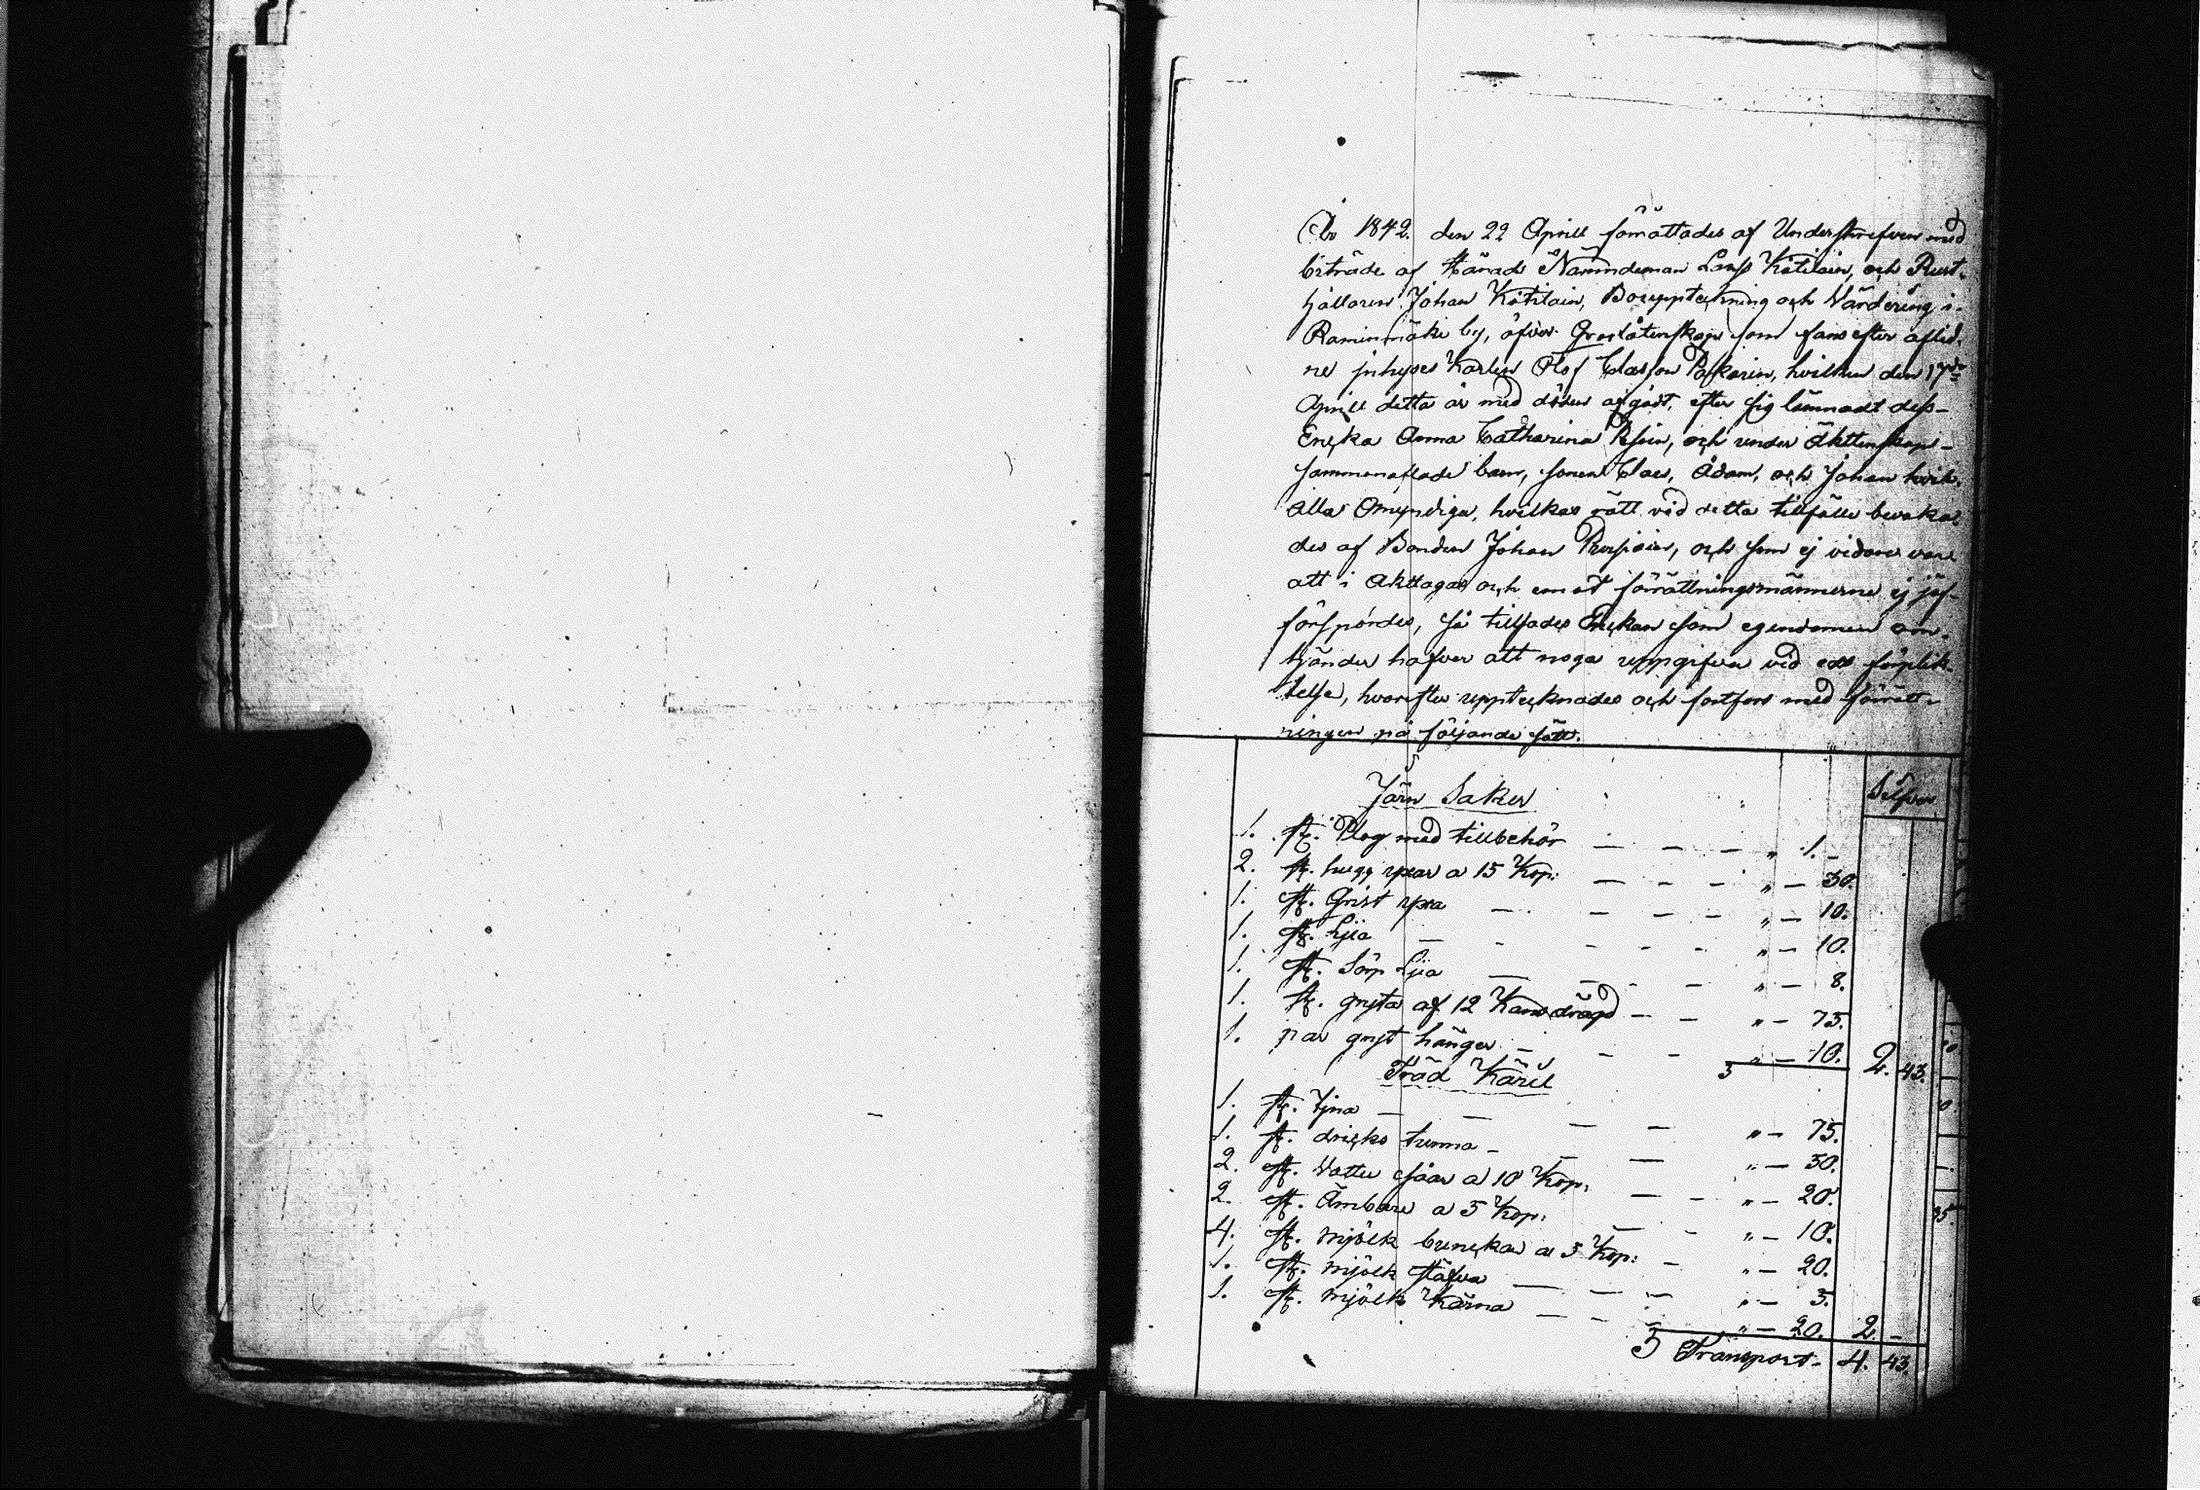 År 1842. den 22 Aprill förrättades af Underskrefven med
biträde af Härads Nämndeman Lars Kötilain, och Rust-
hållaren Johan Kötilain, Bouppteckning och Värdering i
Raminmäki by, öfver Qvarlåtenskap som fans efter aflid-
ne inhyses Karlen Olof Classon Paskarin, hvilken den 17de
Aprill detta år med döden afgått, efter sig lämnadt dess
Encka Anna Catharina och under Äktenskapet
sammanaflade barn, sonen Claes, Adam, och Johan hvil-
alla Omyndiga, hvilkas rätt vid detta tillfälle bevaka-
des af Bonden Johan och som ej vidare var
att i Akttagas och emot förrättningsmännerne ej jäf
förspordes, så tillsades Enckan som egendomen om-
händer hafver att noga uppgifva vid eds förplik-
telse, hvarefter upptecknades och fortfors med förrätt-
ningen på följande sätt.
Järn Saker
Silfver
1. st. Plog med tillbehör — — — " 1. -
2. st. hugg yxar a 15 Kop: — — — " — 30.
1. st. Grist yxa — — — — " — 10.
1. st. Lija — - - - - " — 10.
1. st. Sörp Lija — — - — " — 8.
1. st. gryta af 12 Kans drägd — — " — 75.
1. par gryt hänger — - - " — 10. 2. 43.
Träd Käril
1. st. Tjna — — — — " — 75.
1. st. dricks tunna — — — " — 50.
2. st. Vatten såar a 10 Kop: — - " — 20.
2. st. Ämbare a 5 Kop: — - " — 10.
4. st. mjölk bunckar a 5 Kop: — " — 20.
1. st. mjölk stäfva — — - " — 5.
1. st. mjölk Kärna — - - " — 20. 2. -
Transport. 4. 43.